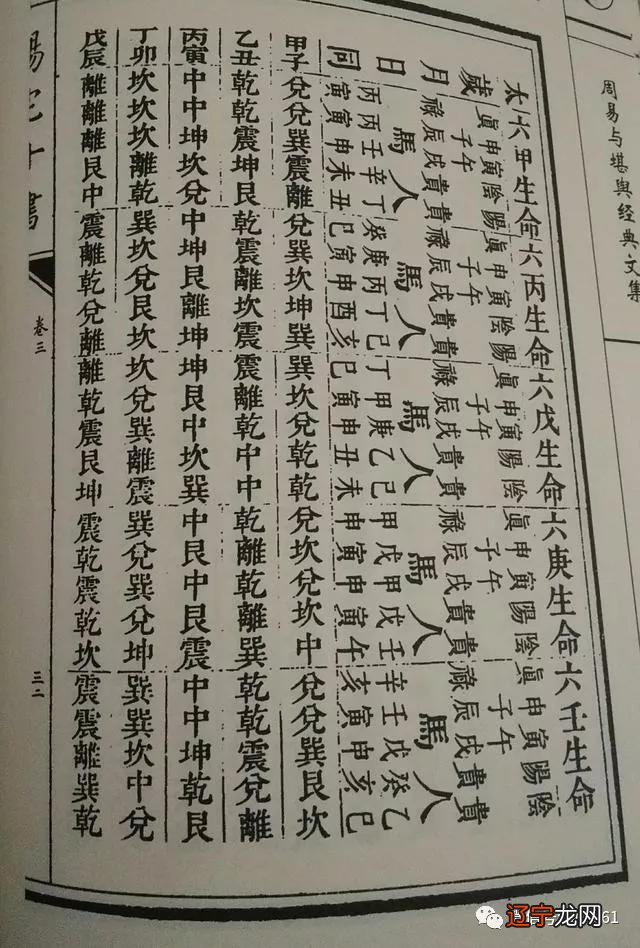 周易与堪舆经典文集
太六甲生命六丙生命六戊生命六庚生命六壬生命
歲真申寅陰陽真申寅陰陽真申寅陽陰真申寅陽陰真申寅陽陰
子午子午子午子午子午
月祿辰戌貴貴祿辰戌貴貴祿辰戌貴貴祿辰戌貴貴祿辰戌貴貴
馬人馬人馬人馬人馬人
日丙丙壬辛丁癸庚丙丁己丁甲庚乙己甲戊甲戊壬辛壬戊癸乙
同寅寅申未丑巳寅申酉亥巳寅申丑未申寅申寅午亥寅申亥巳
甲子兌兌巽震離兌巽坎坤巽巽坎兌乾乾兌坎兌坎中兌兌巽艮坎
乙丑乾乾震坤艮乾震離坎震震離乾中中乾離乾離巽乾乾震兌離
丙寅中中坤坎兌中坤艮離坤坤艮中坎巽中艮中艮震中中坤乾艮
丁卯坎坎坎離乾巽坎兌艮坎坎兌巽離震巽兌巽兌坤巽巽坎中兌
戊辰離離離艮中震離乾兌離離乾震艮坤震乾震乾坎震震離巽乾
陽宅十書
卷三
三二
辽宁龙网
61